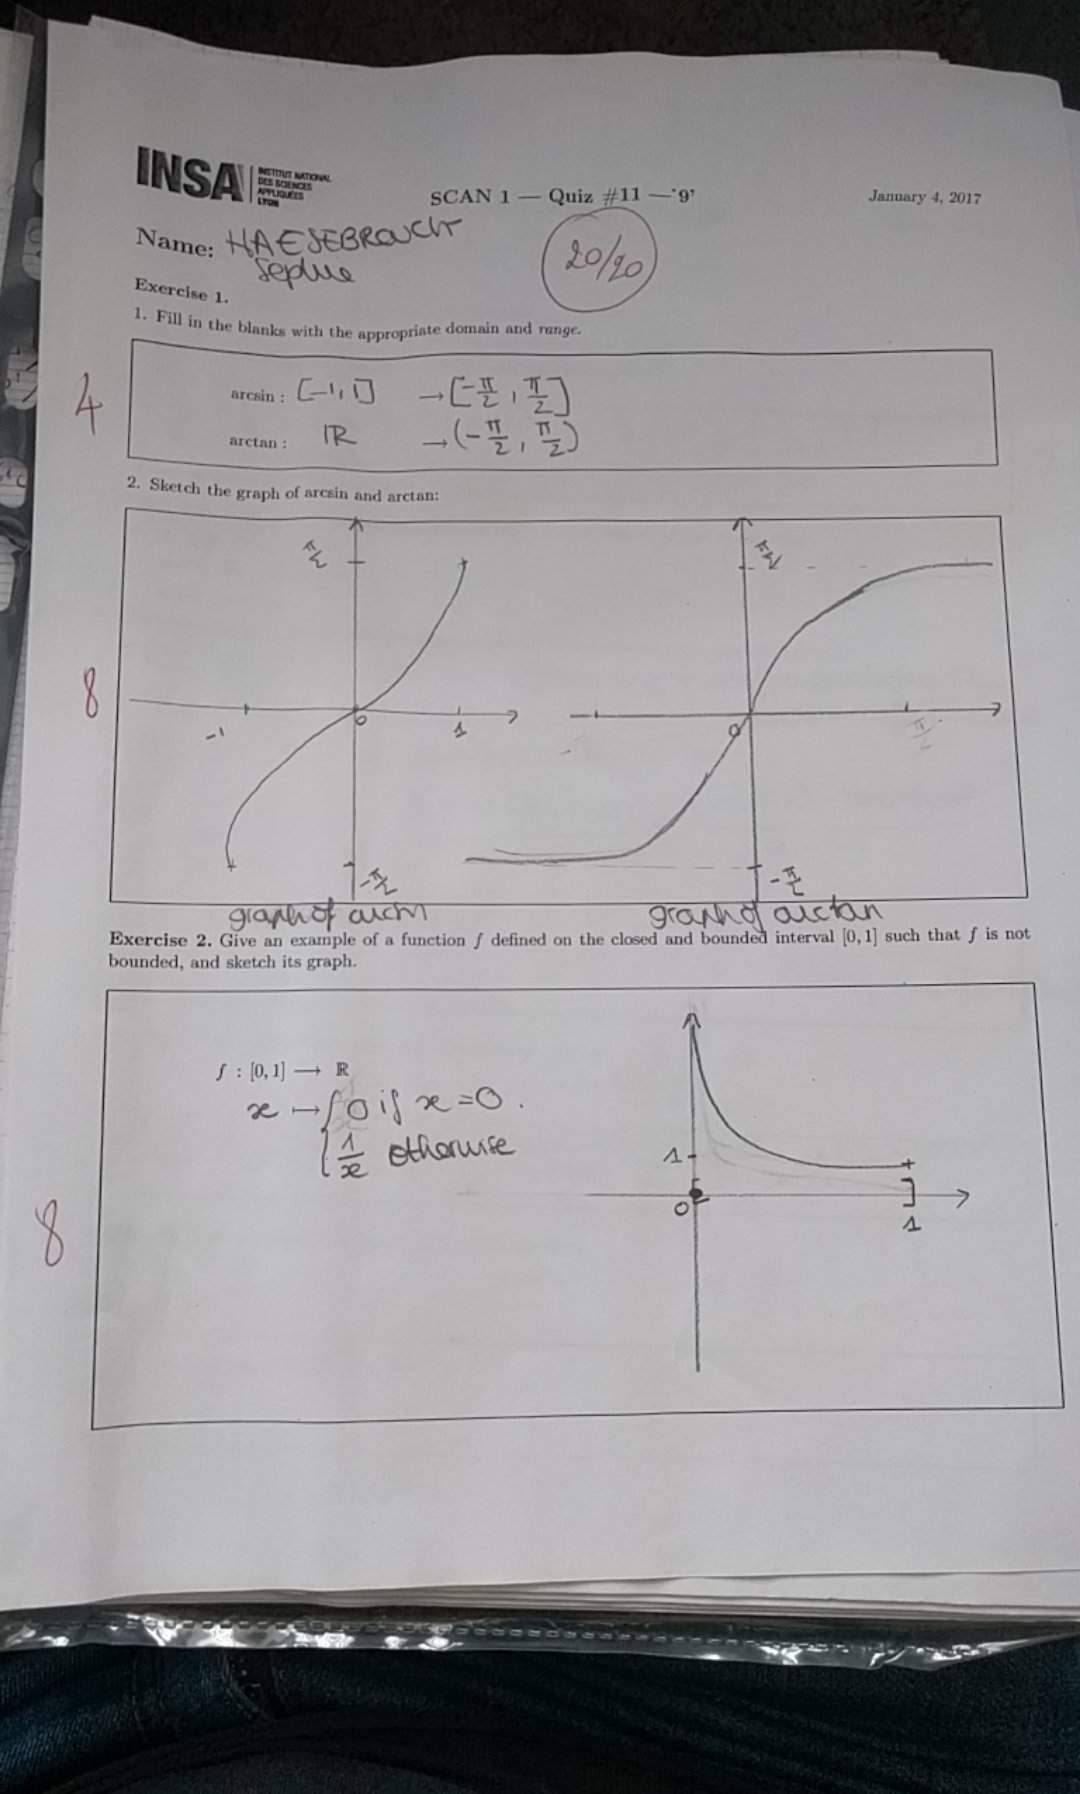 INSA INSTITUT NATIONAL
DES SCIENCES
APPLIQUÉES
LYON
SCAN 1 — Quiz #11 — '9'
January 4, 2017
Name: HAESEBROUCK
20/20
Exercise 1.
1. Fill in the blanks with the appropriate domain and range.
4
arcsin : [-1,1] → [-π/2, π/2]
arctan : ℝ → (-π/2, π/2)
2. Sketch the graph of arcsin and arctan:
8
π/2
-1 0 1
-π/2
π/2
0 π/2
-π/2
graph of
graph of arctan
Exercise 2. Give an example of a function f defined on the closed and bounded interval [0, 1] such that f is not
bounded, and sketch its graph.
8
f : [0, 1] ⟶ ℝ
x ↦ { 0 if x = 0.
{ 1/x otherwise
1
0 ]
1